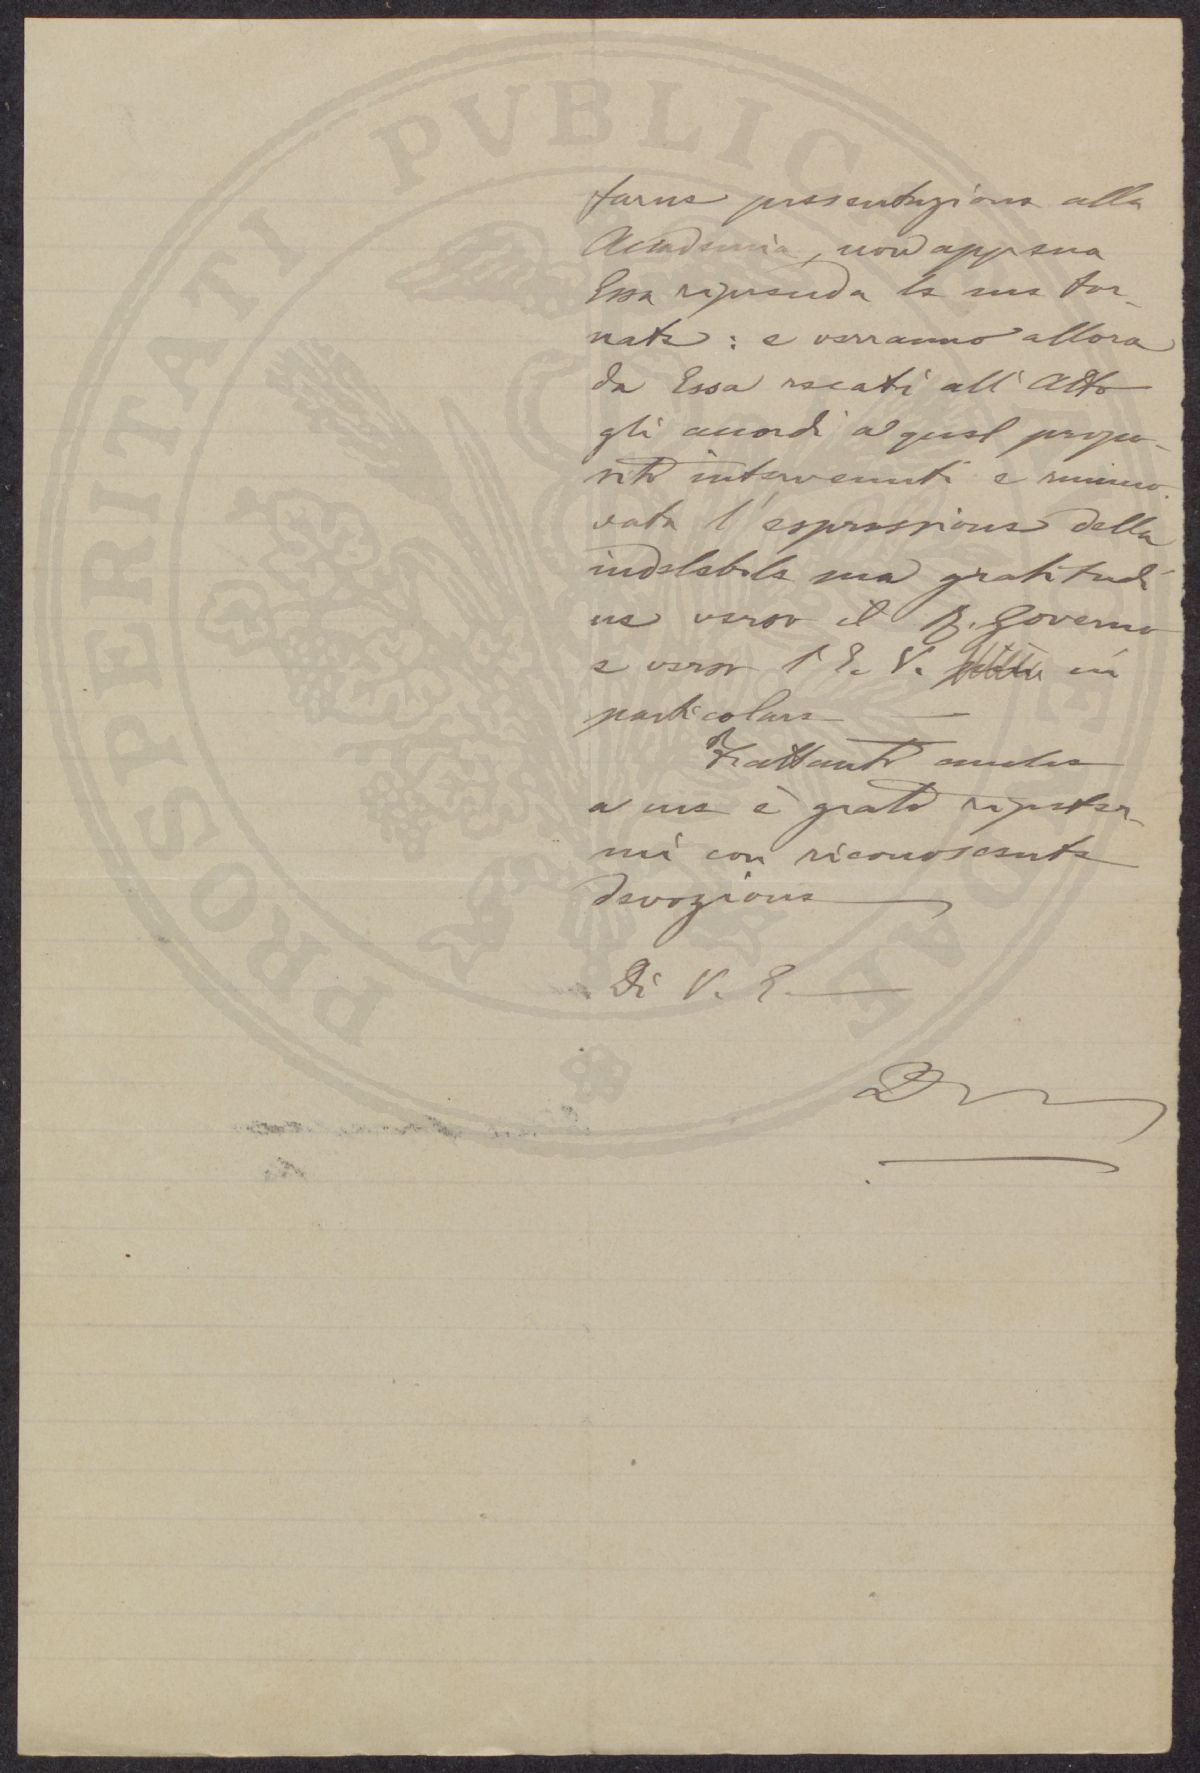 PROSPERITATI PVBLICAE
farne presentazione alla
Accademia, non appena
Essa riprenda le sue tor-
nate: e verranno allora
da Essa recati all'Atto
gli accordi a quel propo-
sito intervenuti e rinno-
vata l'espressione della
indelebile sua gratitudi
ne verso il R. Governo
e verso l'E. V. in
particolare
Frattanto anche
a me è grato ripeter-
mi con riconoscente
devozione
Di V. E.